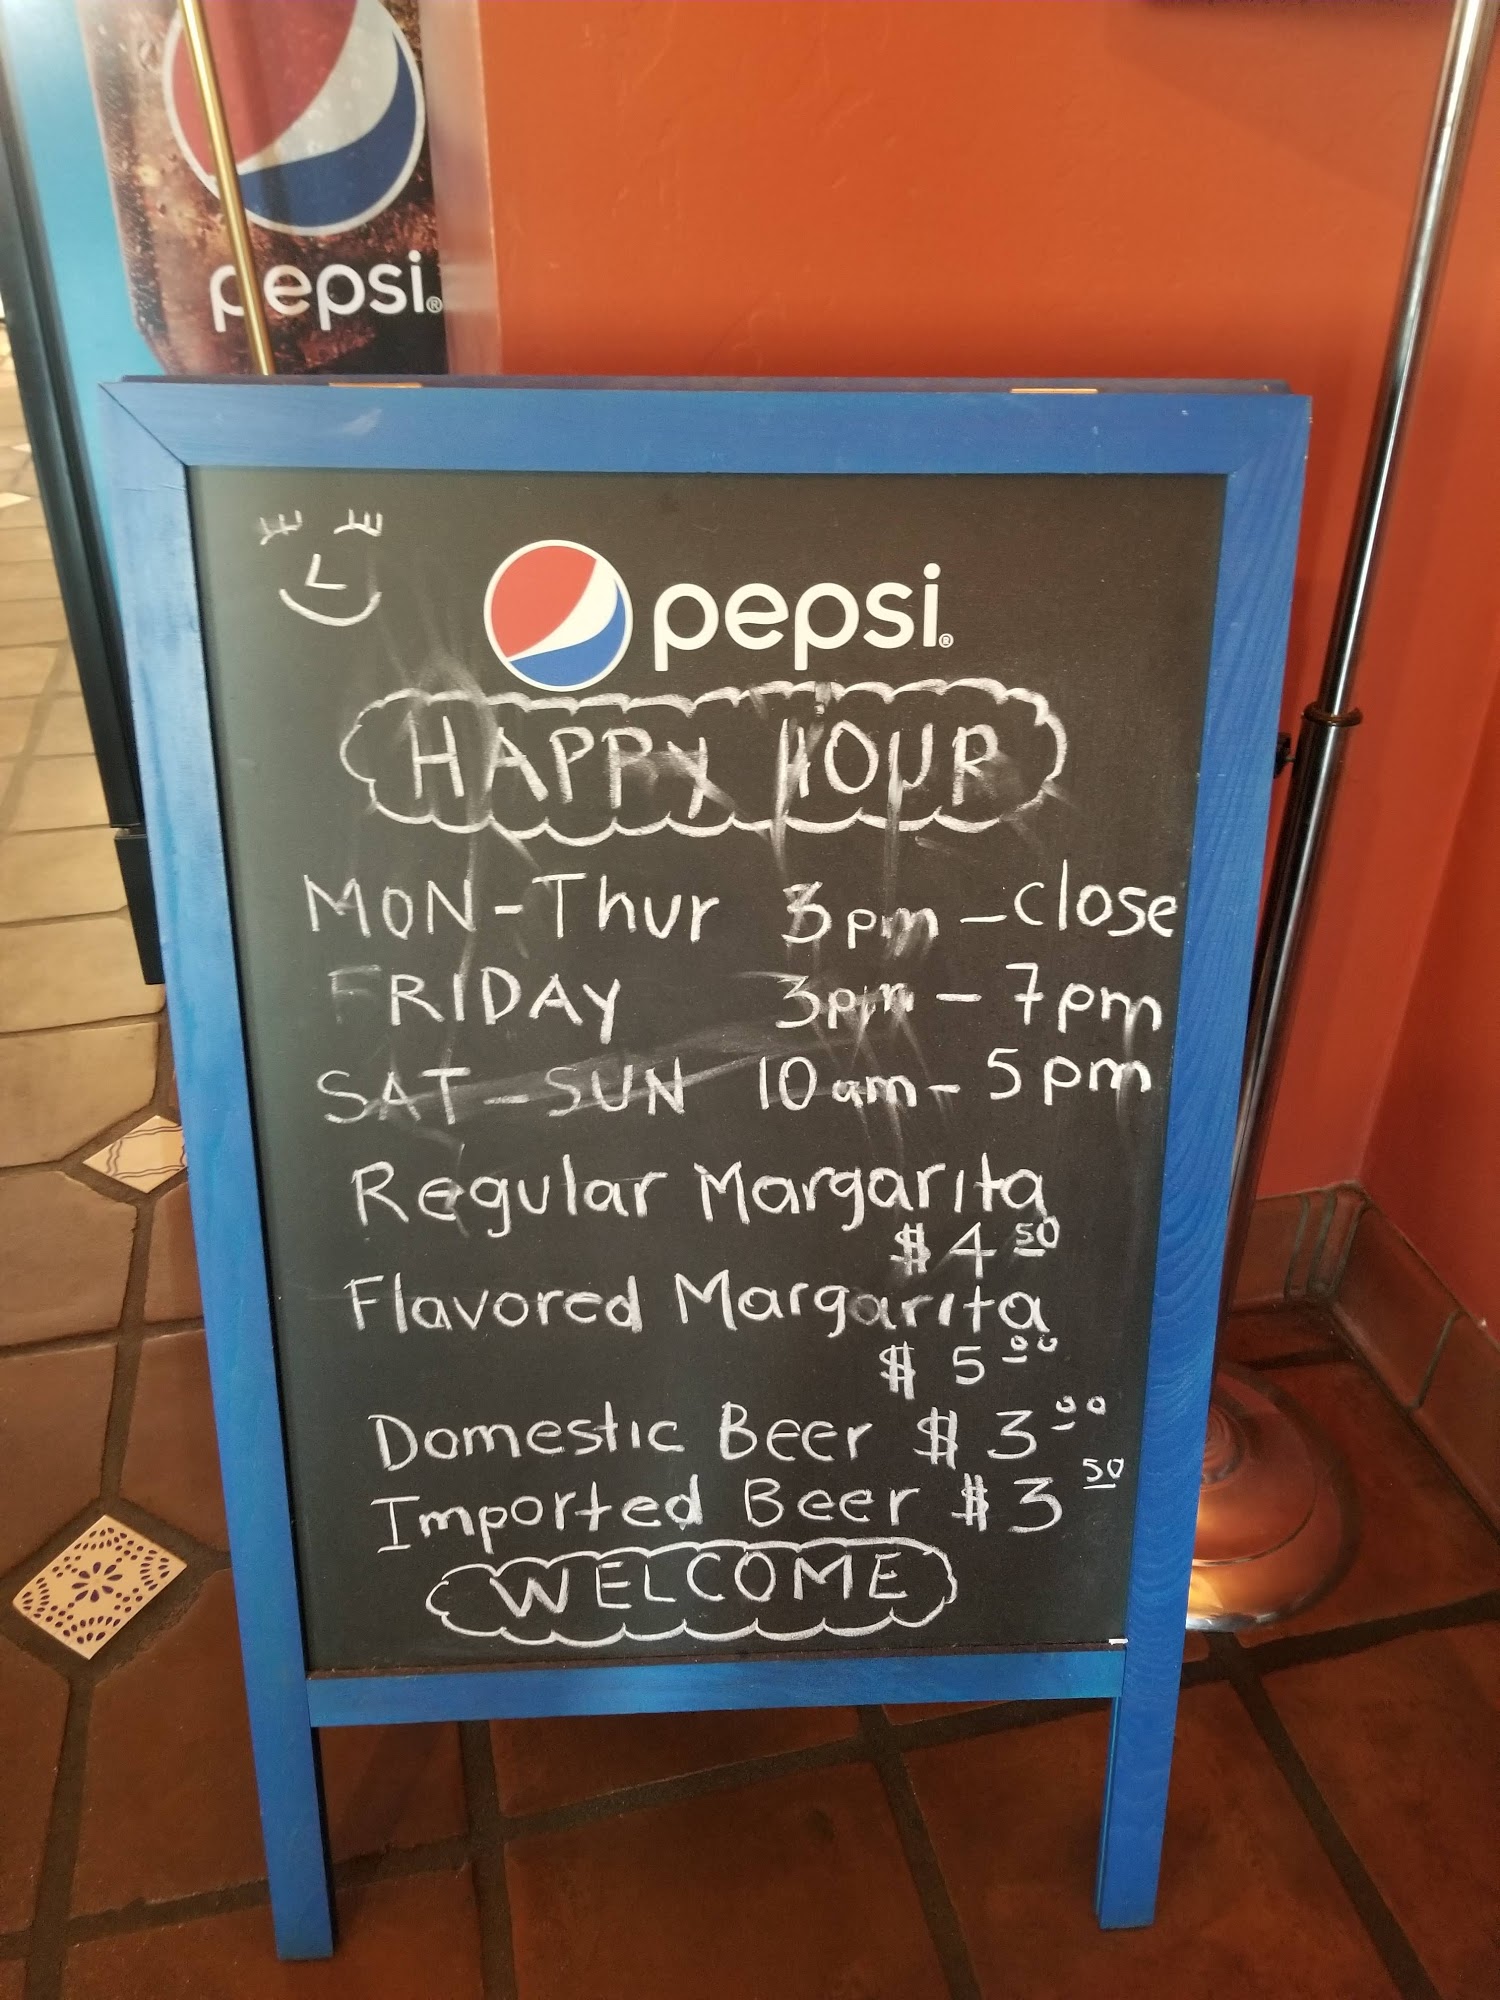 pepsi®
pepsi®
HAPPY HOUR
MON-Thur 3pm - close
FRIDAY 3pm - 7pm
SAT-SUN 10am - 5pm
Regular Margarita
$4 50
Flavored Margarita
$5 00
Domestic Beer $3 00
Imported Beer $3 50
WELCOME